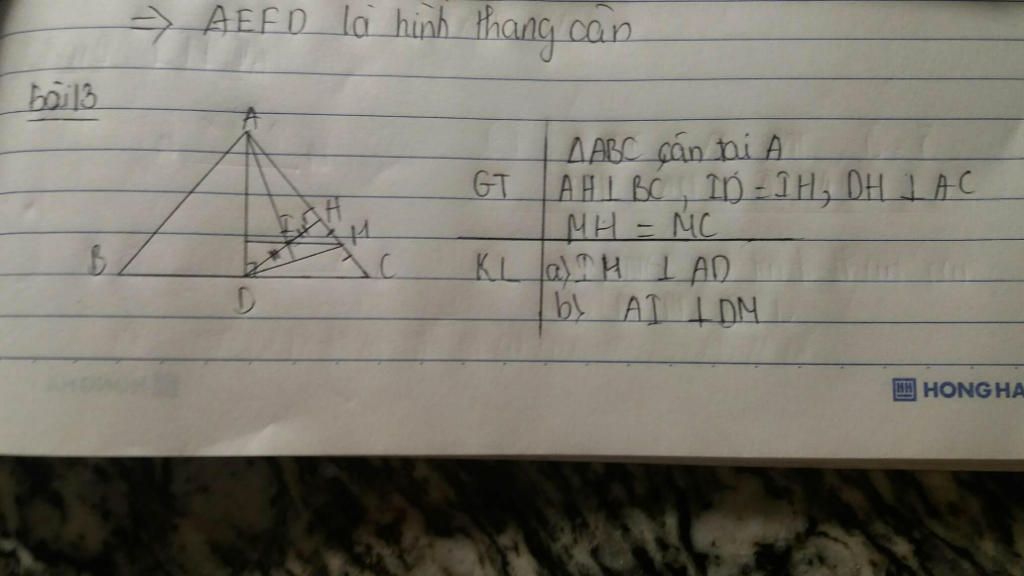 => AEFD là hình thang cân
bài 13
A
B
C
D
H
I
M
GT
ΔABC cân tại A
AH ⊥ BC, ID = IH, DH ⊥ AC
MH = MC
KL
a) IM ⊥ AD
b) AI ⊥ DM
HONG HA